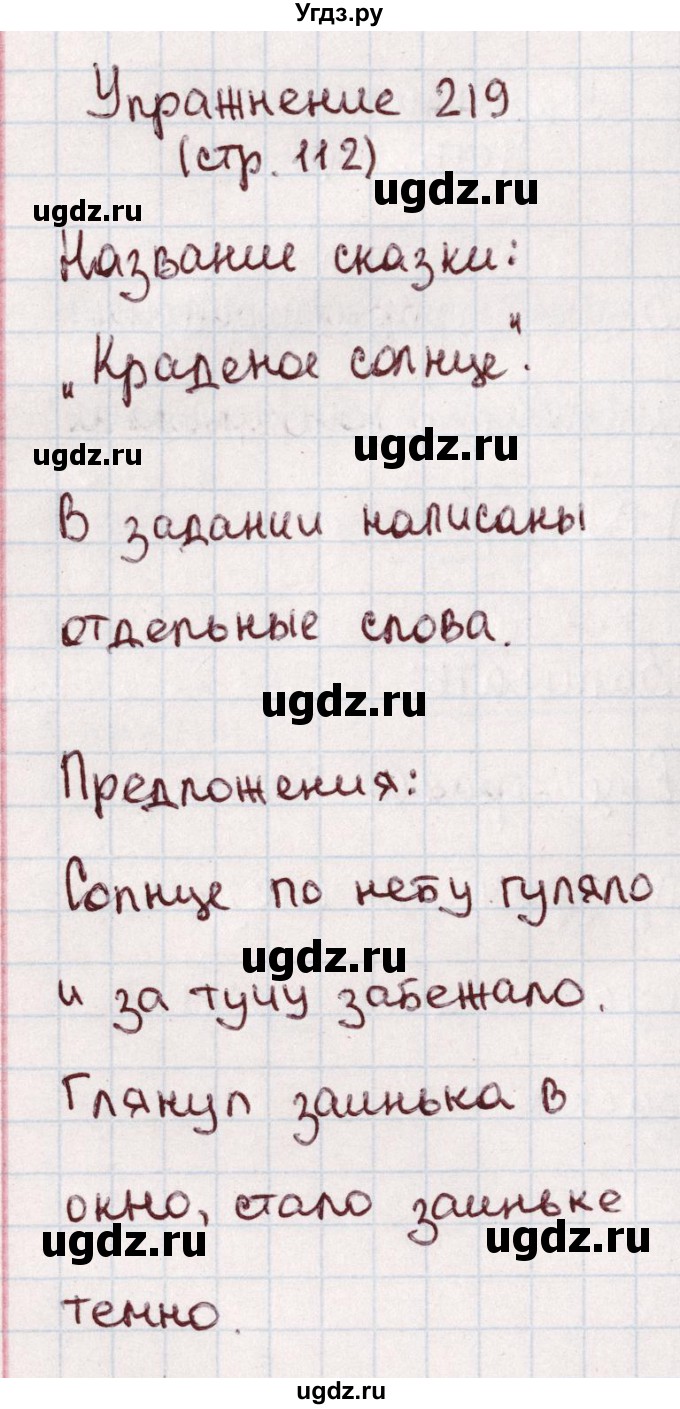 Угдз.ру
Упражнение 219
(стр. 112)
ugdz.ru
ugdz.ru
Название сказки:
„Краденое солнце“.
ugdz.ru
ugdz.ru
В задании написаны
отдельные слова.
ugdz.ru
Предложения:
Солнце по небу гуляло
ugdz.ru
и за тучу забежало.
Глянул заинька в
окно, стало заиньке
ugdz.ru
ugdz.ru
темно.
ugdz.ru